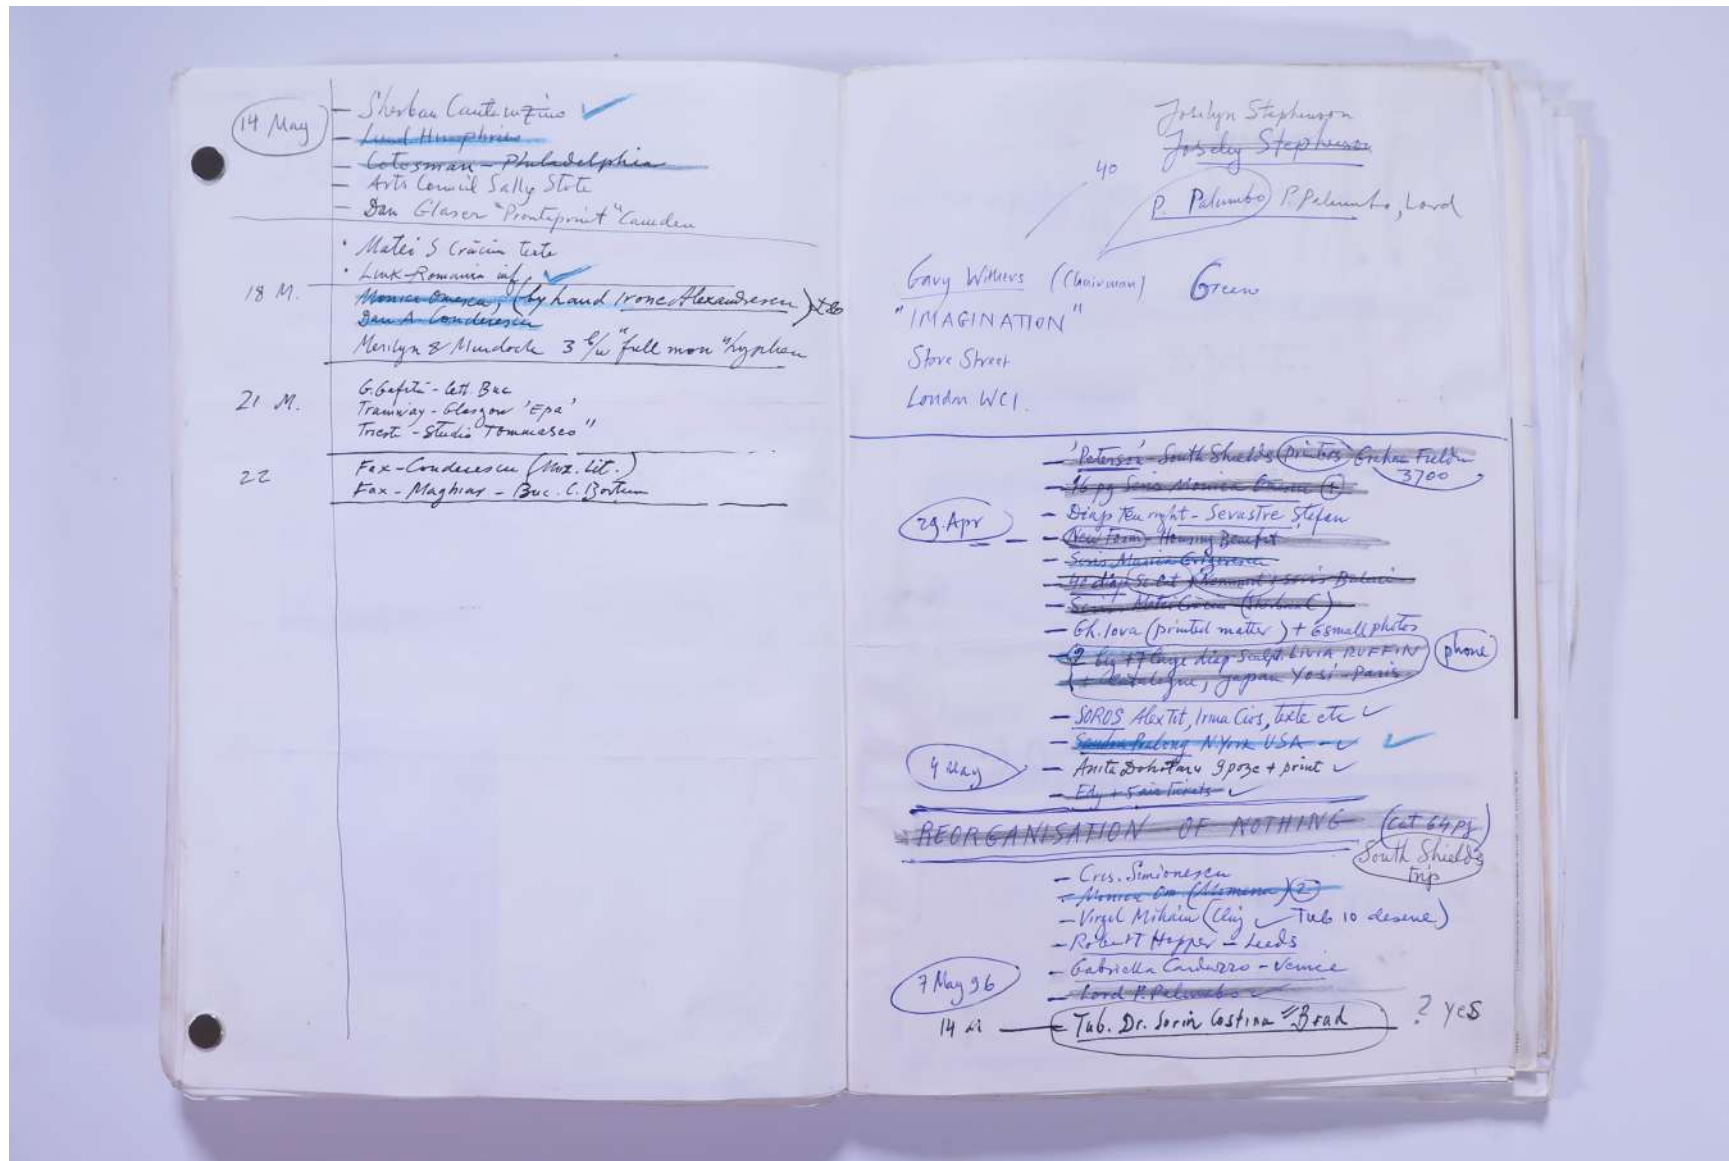 14 May
— Sherban Cantacuzino ✓
— Lund Humphries
— Cotosman – Philadelphia
— Arts Council Sally Stote
— Dan Glaser "Prontaprint" Camden
• Matei S Crăciun texte
• Link-Romania inf ✓
18 M. Monica Omescu, (by hand Irone Alexandrescu)
Dan A. Conderescu
Merilyn & Murdock 3 b/w "full moon" hyphen
21 M. G. Gafita - lett. Buc
Tramway - Glasgow 'Epa'
Trieste - Studio Tommaseo"
22 Fax - Conderescu (Muz. Lit.)
Fax - Maghiar - Buc. C. Bortun
Joselyn Stephenson
Stephenson
40
P. Palumbo P. Palumbo, Lord
Gary Withers (Chairman) Green
"IMAGINATION"
Store Street
London WC1.
— 'Peterson' - South Shields printers Graham
3700
— 16 pg Monica +
29. Apr — Diap Ten right - Sevastre Ștefan
— New Form - Housing Benefit
—
— 40 diap
— Matei Crăciun (Sherban C)
— Gh. Iova (printed matter) + 6 small photos
— 2 big + 7 large diap sculpt. LIVIA RUFFIN phone
+ catalogue, Japan Yosi - Paris
— SOROS Alex Tit, Irina Cios, texte etc ✓
— Sandra Pralong N.York USA – ✓ ✓
4 May — Anita Dohotaru 9 poze + print ✓
— Edy + 5 air tickets ✓
REORGANISATION OF NOTHING (cat 64 pg)
South Shields
trip
— Cris. Simionescu
— Monica Om (Momena) 2
— Virgil Mihaiu (Cluj ✓ Tub 10 desene)
— Robert Hopper - Leeds
7 May 96 — Gabriella Cardazzo - Venice
— Lord P. Palumbo ✓
14 — Tub. Dr. Sorin Costina "Brad ? yes